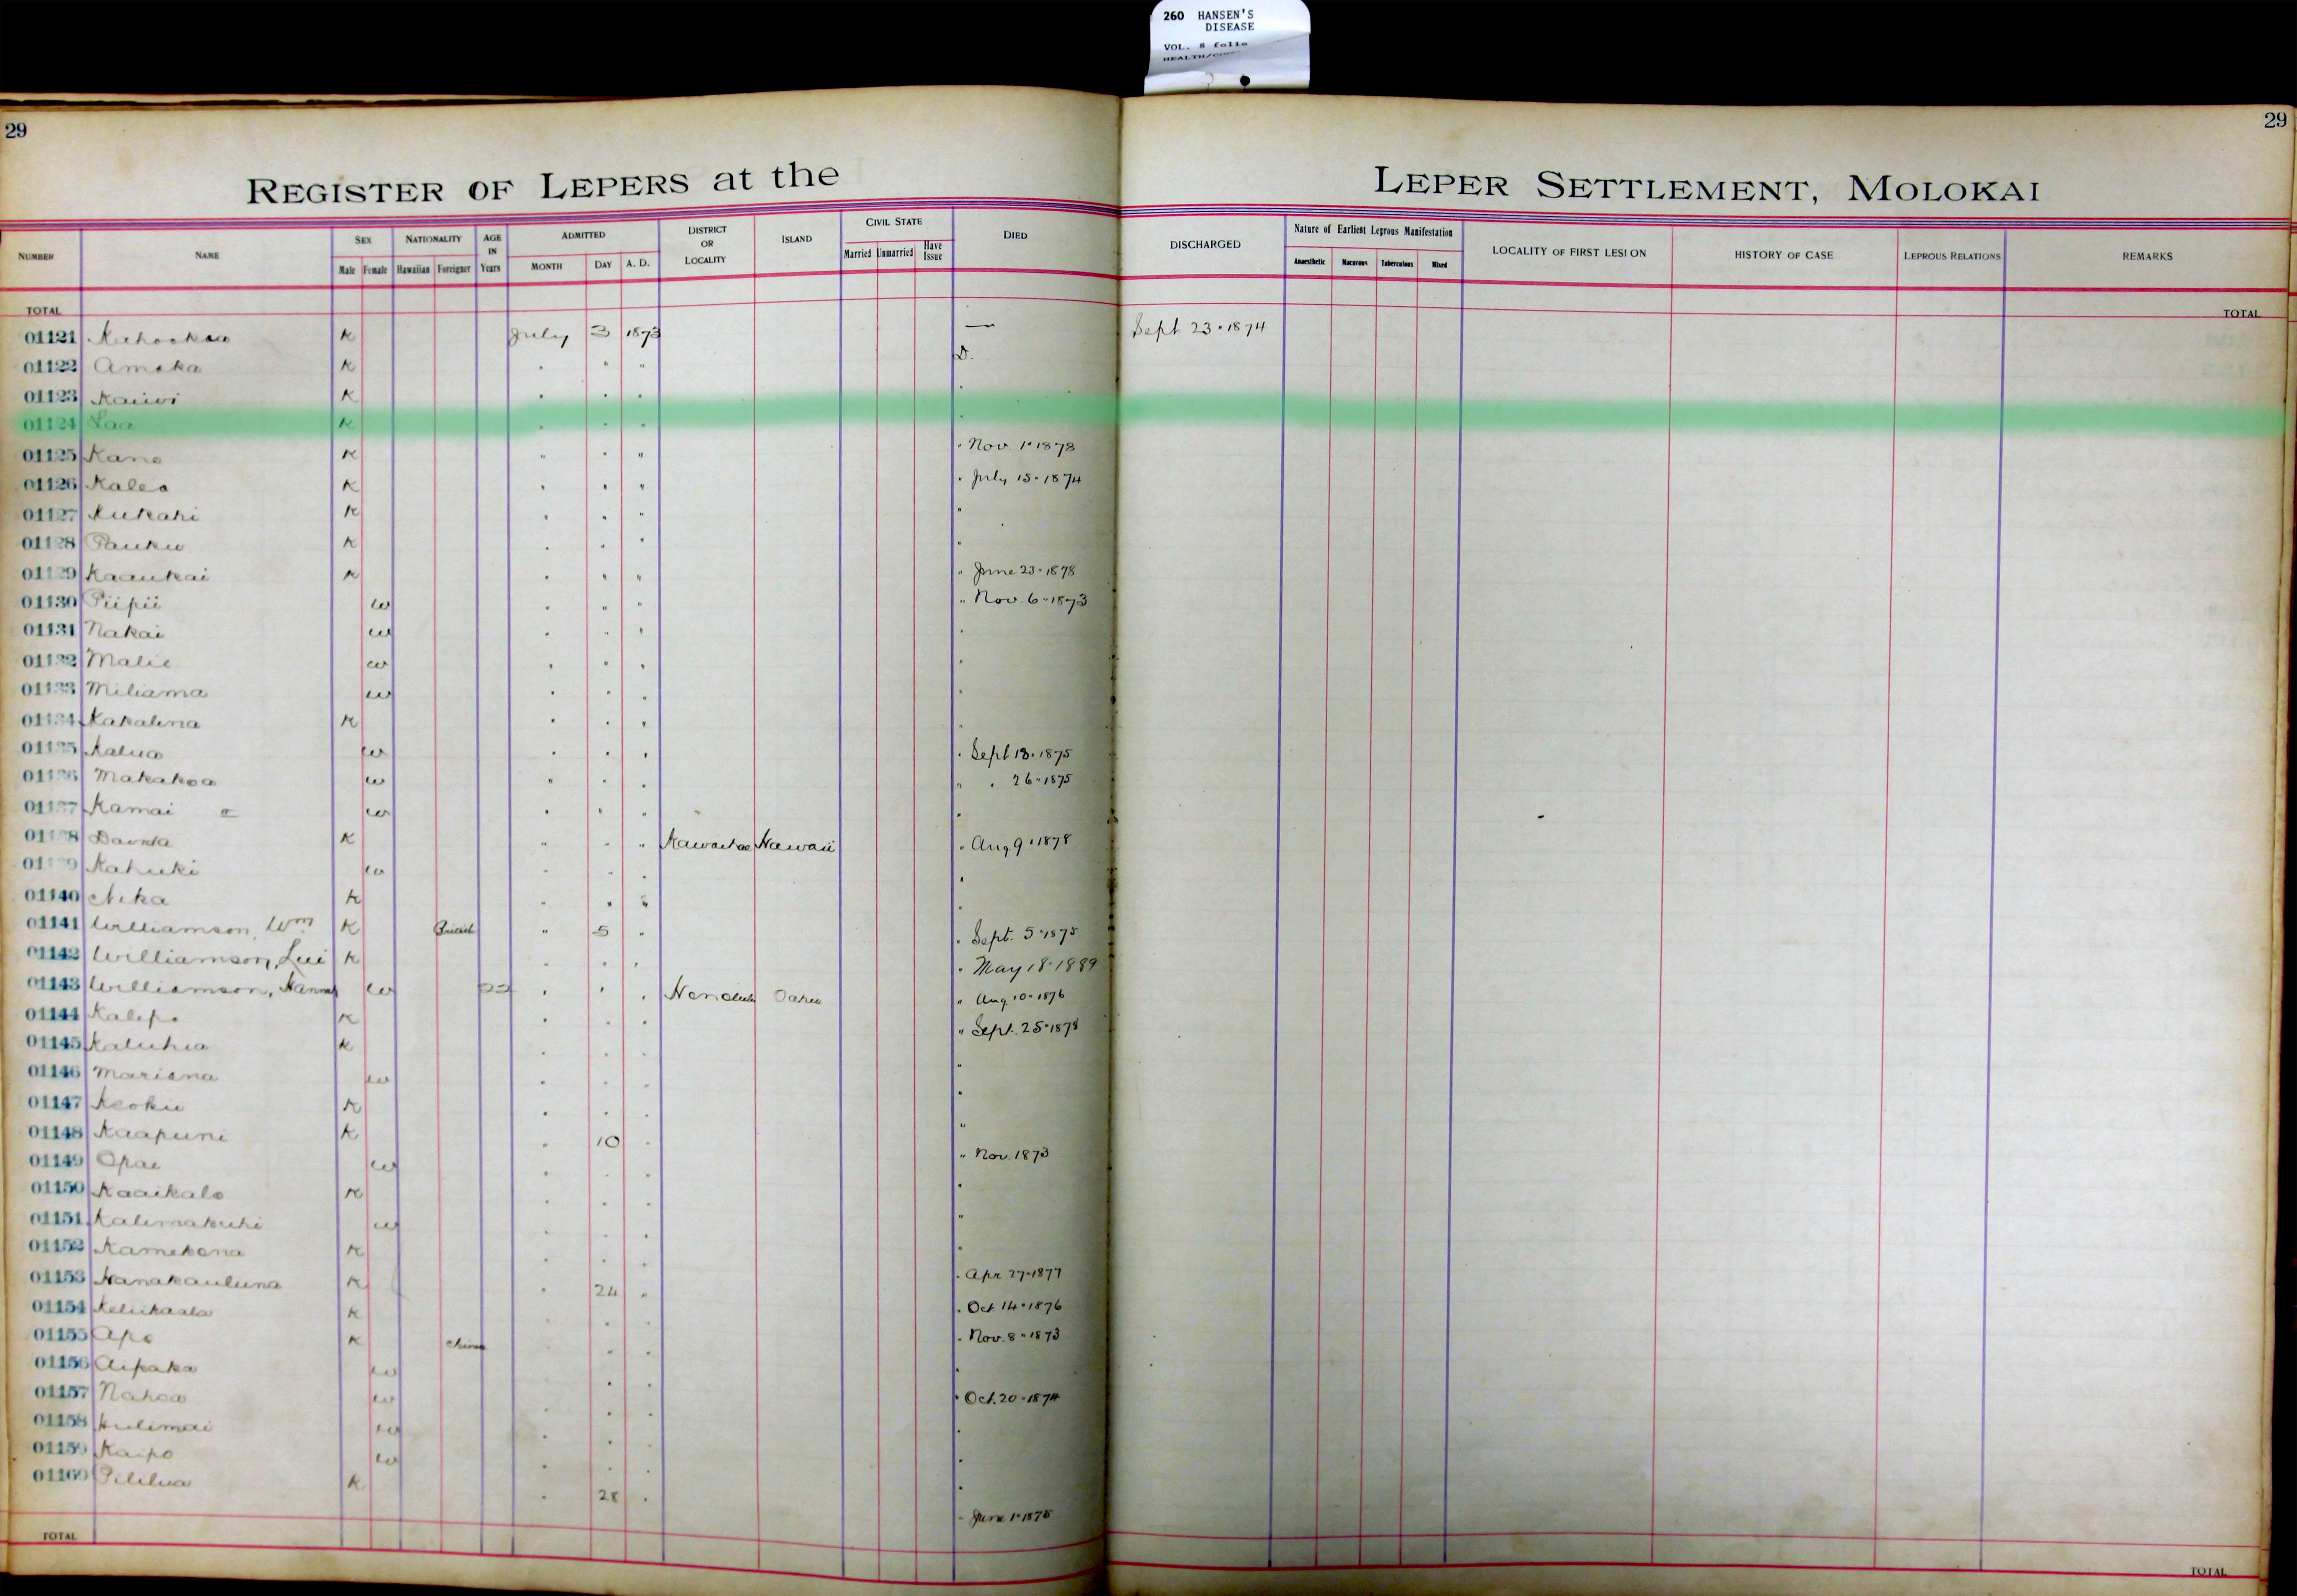 260 HANSEN'S
DISEASE
VOL. 8 folio
29
29
REGISTER OF LEPERS at the LEPER SETTLEMENT, MOLOKAI
NUMBER NAME SEX NATIONALITY AGE IN Years ADMITTED DISTRICT OR LOCALITY ISLAND CIVIL STATE DIED DISCHARGED Nature of Earliest Leprous Manifestation LOCALITY OF FIRST LESION HISTORY OF CASE LEPROUS RELATIONS REMARKS
Male Female Hawaiian Foreigner MONTH DAY A. D. Married Unmarried Have Issue Anaesthetic Macurous Tuberculous Mixed
TOTAL TOTAL
01121 K July 3 1873 — Sept 23 · 1874
01122 Amaka K " " " D.
01123 Kaiwi K " " " "
01124 Laa K " " " "
01125 Kane K " " " " Nov. 1 · 1878
01126 Kalea K " " " " July 15 · 1874
01127 Kukahi K " " " "
01128 Pauku K " " " "
01129 Kaaukai K " " " " June 23 · 1878
01130 Piipii w " " " " Nov. 6 · 1873
01131 Nakai w " " " "
01132 Malie w " " " "
01133 Miliama w " " " "
01134 Kakalina K " " " "
01135 Kalua w " " " " Sept 18 · 1875
01136 Makakoa w " " " " " 26 · 1875
01137 Kamai w " " " "
01138 K " " " Kawaihae Hawaii " Aug 9 · 1878
01139 Kahuki w " " " "
01140 Nika K " " " "
01141 Williamson, Wm K British " 5 " " Sept. 5 · 1875
01142 Williamson, Lui K " " " " May 18 · 1889
01143 Williamson, w " " " Honolulu Oahu " Aug 10 · 1876
01144 Kalepo K " " " " Sept. 25 · 1878
01145 Kaluhia K " " " "
01146 Mariana w " " " "
01147 Keoku K " " " "
01148 Kaapuni K " 10 " "
01149 Opae w " " " " Nov. 1873
01150 Kaaikalo K " " " "
01151 Kalimakuhi w " " " "
01152 Kamekona K " " " "
01153 Nanakauluna K " 24 " " Apr 27 · 1877
01154 Keliikaala K " " " " Oct 14 · 1876
01155 Apo K China " " " " Nov. 8 · 1873
01156 Aipaka w " " " "
01157 Nahoa w " " " " Oct. 20 · 1874
01158 Kulimai w " " " "
01159 Kaipo w " " " "
01160 Pililua K " 28 " " June 1 · 1875
TOTAL TOTAL